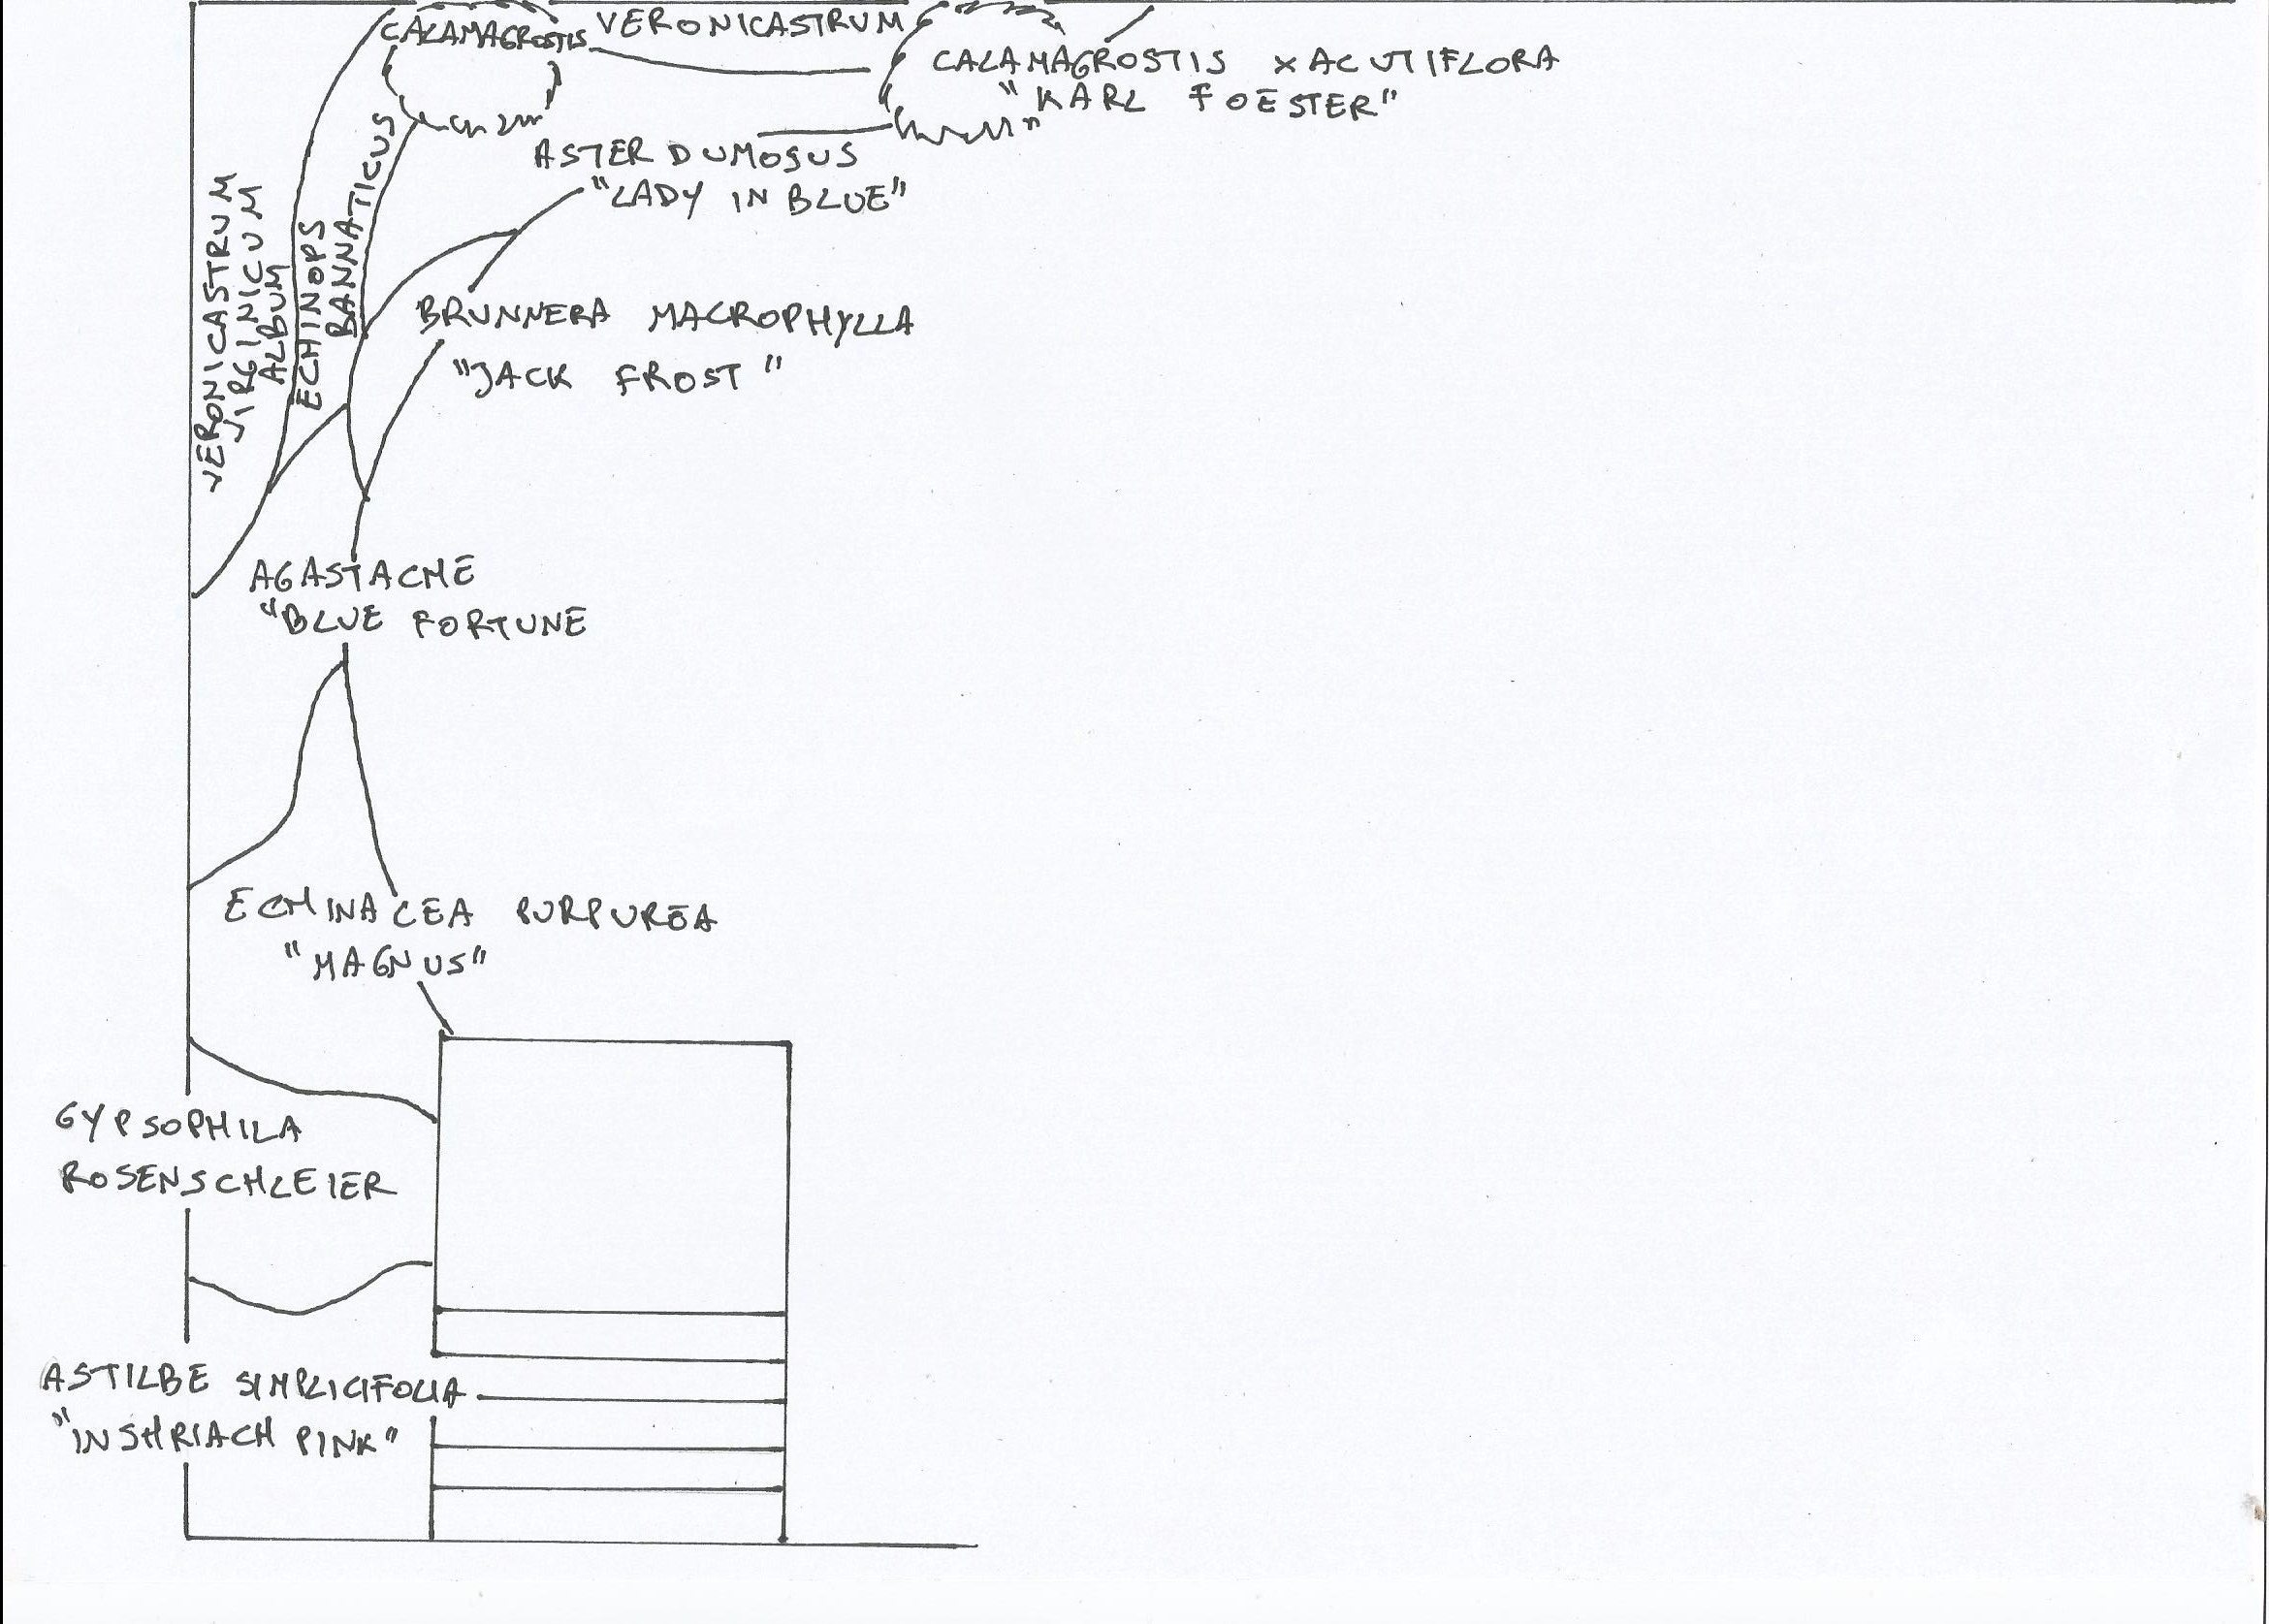 CALAMAGROSTIS
VERONICASTRUM
CALAMAGROSTIS XACUTIFLORA
"KARL FOESTER"
ASTER DUMOSUS
"LADY IN BLUE"
VERONICASTRUM
VIRGINICUM
ALBUM
ECHINOPS
BANNATICUS
BRUNNERA MACROPHYLLA
"JACK FROST"
AGASTACHE
"BLUE FORTUNE
ECHINACEA PURPUREA
"MAGNUS"
GYPSOPHILA
ROSENSCHLEIER
ASTILBE SIMPLICIFOLIA
"INSHRIACH PINK"